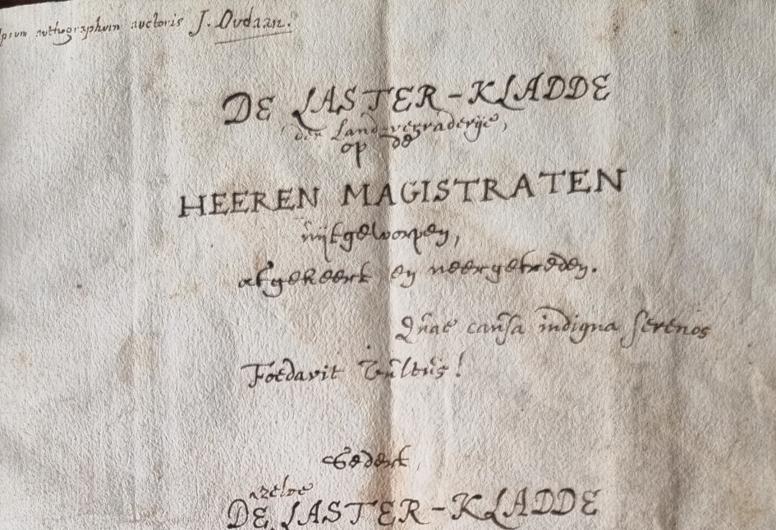 ipsum authographum auctoris J. Oudaan.
DE LASTER-KLADDE
der Land-verraderije,
op de
HEEREN MAGISTRATEN
uijtgeworpen,
afgekeert en neergetreden.
Quae causa indigna serenos
Foedavit Vultus!
DE LASTER-KLADDE